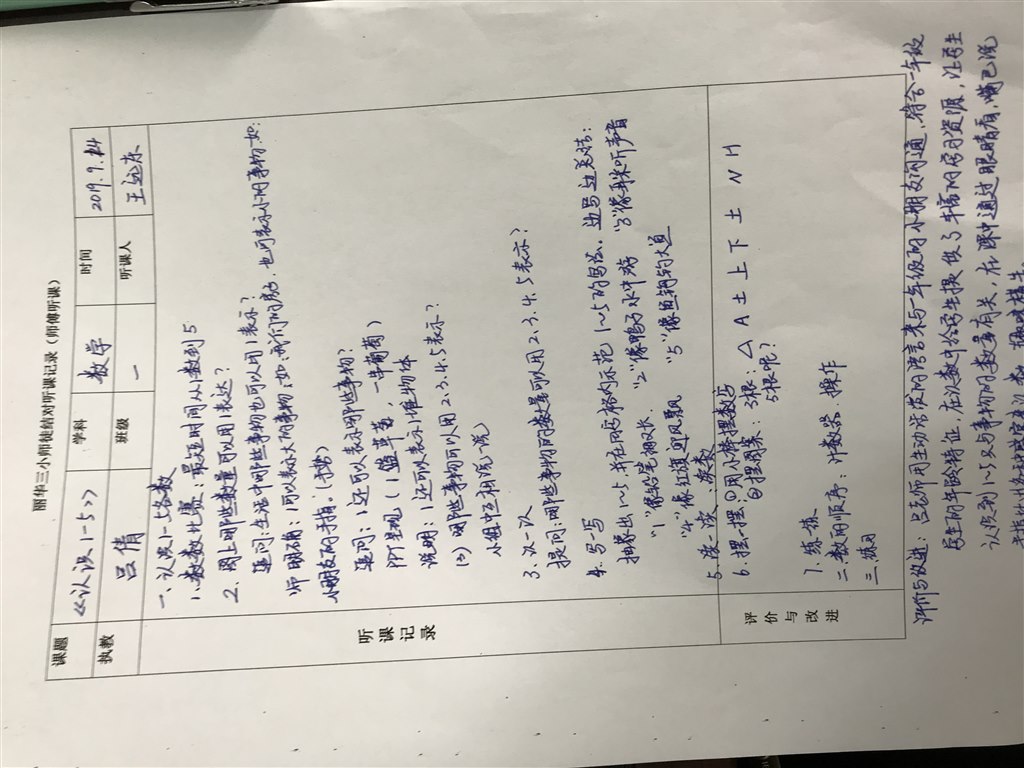 丽华三小师徒结对听课记录（师傅听课）
课题 《认识1-5》 学科 数学 时间 2019.9.
执教 吕倩 班级 一 听课人
听课记录
一、认识1-5各数
1.数数比赛：最短时间从1数到5
2.图上哪些数量可以用1表达？
追问：生活中哪些事物也可以用1表示？
师明确：1可以表示大的事物，如：我们的 也可表示小的事物，如：
小朋友的手指。
追问：1还可以表示哪些事物？
PPT呈现（1篮苹果，一串葡萄）
说明：1还可以表示1堆物体
(2) 哪些事物可以用2.3.4.5表示？
小组中互相说一说
3.认一认
提问：哪些事物的数量可以用2.3.4.5表示？
4.写一写
抽象出1~5，并在田字格内示范1~5的写法。边写边总结：
"1"像铅笔细又长 "2"像鸭子水中游 "3"像耳朵听声音
"4"像红旗迎风飘 "5"像鱼钩钓大鱼
5.读一读：读数
6.摆一摆 ①用小棒摆数
②摆图案：3根：△ A 土 上 下 土 N H
5根呢？
评价与改进
7.练一练
二、数的顺序：计数器 操作
三、练习
评价与改进：吕老师用生动活泼的语言来与一年级的小朋友沟通，符合一年级
学生的年龄特征，在认数中给学生提供了丰富的学习资源，让学生
认识到1~5与事物的数量有关，在课中通过眼睛看，嘴巴说